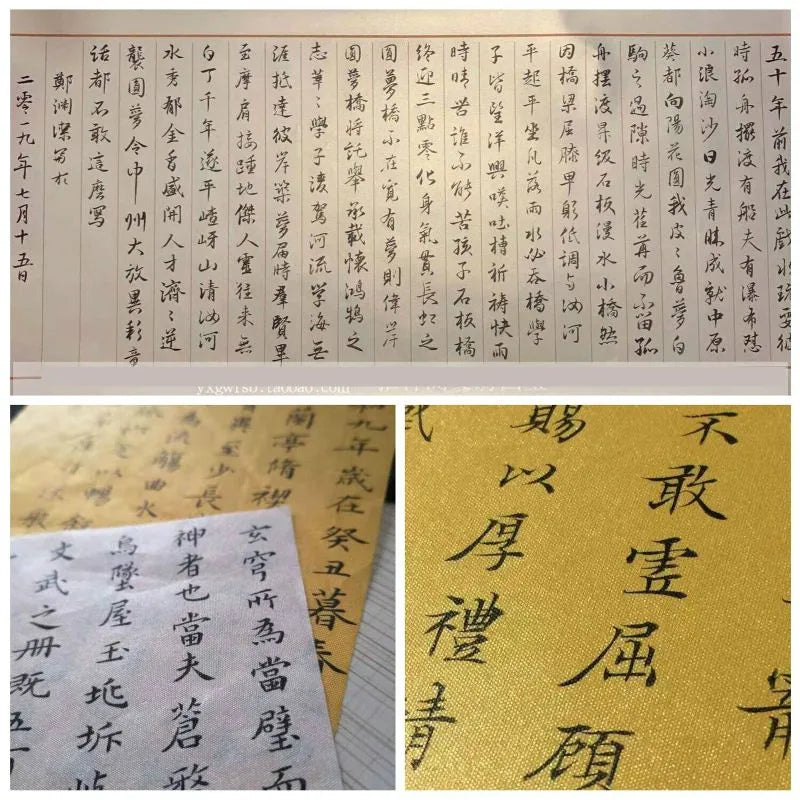 五十年前我在此戲水玩耍彼
時孤舟擺渡有船夫有瀑布懟
小浪淘沙日光青睞成就中原
葵都向陽花圓我皮〻魯夢白
駒之過隙時光荏苒而不留孤
舟擺渡昇级石板漫水小橋然
因橋梁屈膝卑躬低調与汝河
平起平坐凡落雨水必吞橋學
子皆望洋興嘆吐槽祈禱快雨
時晴苦誰不能苦孩子石板橋
終迎三點零化身氣貫長虹之
圓夢橋不在寬有夢則偉岸
圓夢橋將託舉承載懷鴻鵠之
志莘〻學子凌駕河流學海無
涯抵達彼岸築夢屆時羣賢畢
至摩肩接踵地傑人靈往來無
白丁千年遂平嵖岈山清汝河
水秀郁金香盛開人才濟〻逆
襲圓夢令中州大放異彩童
話都不敢這麼寫
鄭淵潔寫於
二零一九年七月十五日
yxgwfsb.taobao.com
九年歲在癸丑暮春
蘭亭脩禊
至少長
流觴曲水
玄穹所為當璧而
神者也當夫蒼
烏墜屋玉
文武之冊既五
不敢霊屈顧
賜以厚禮請